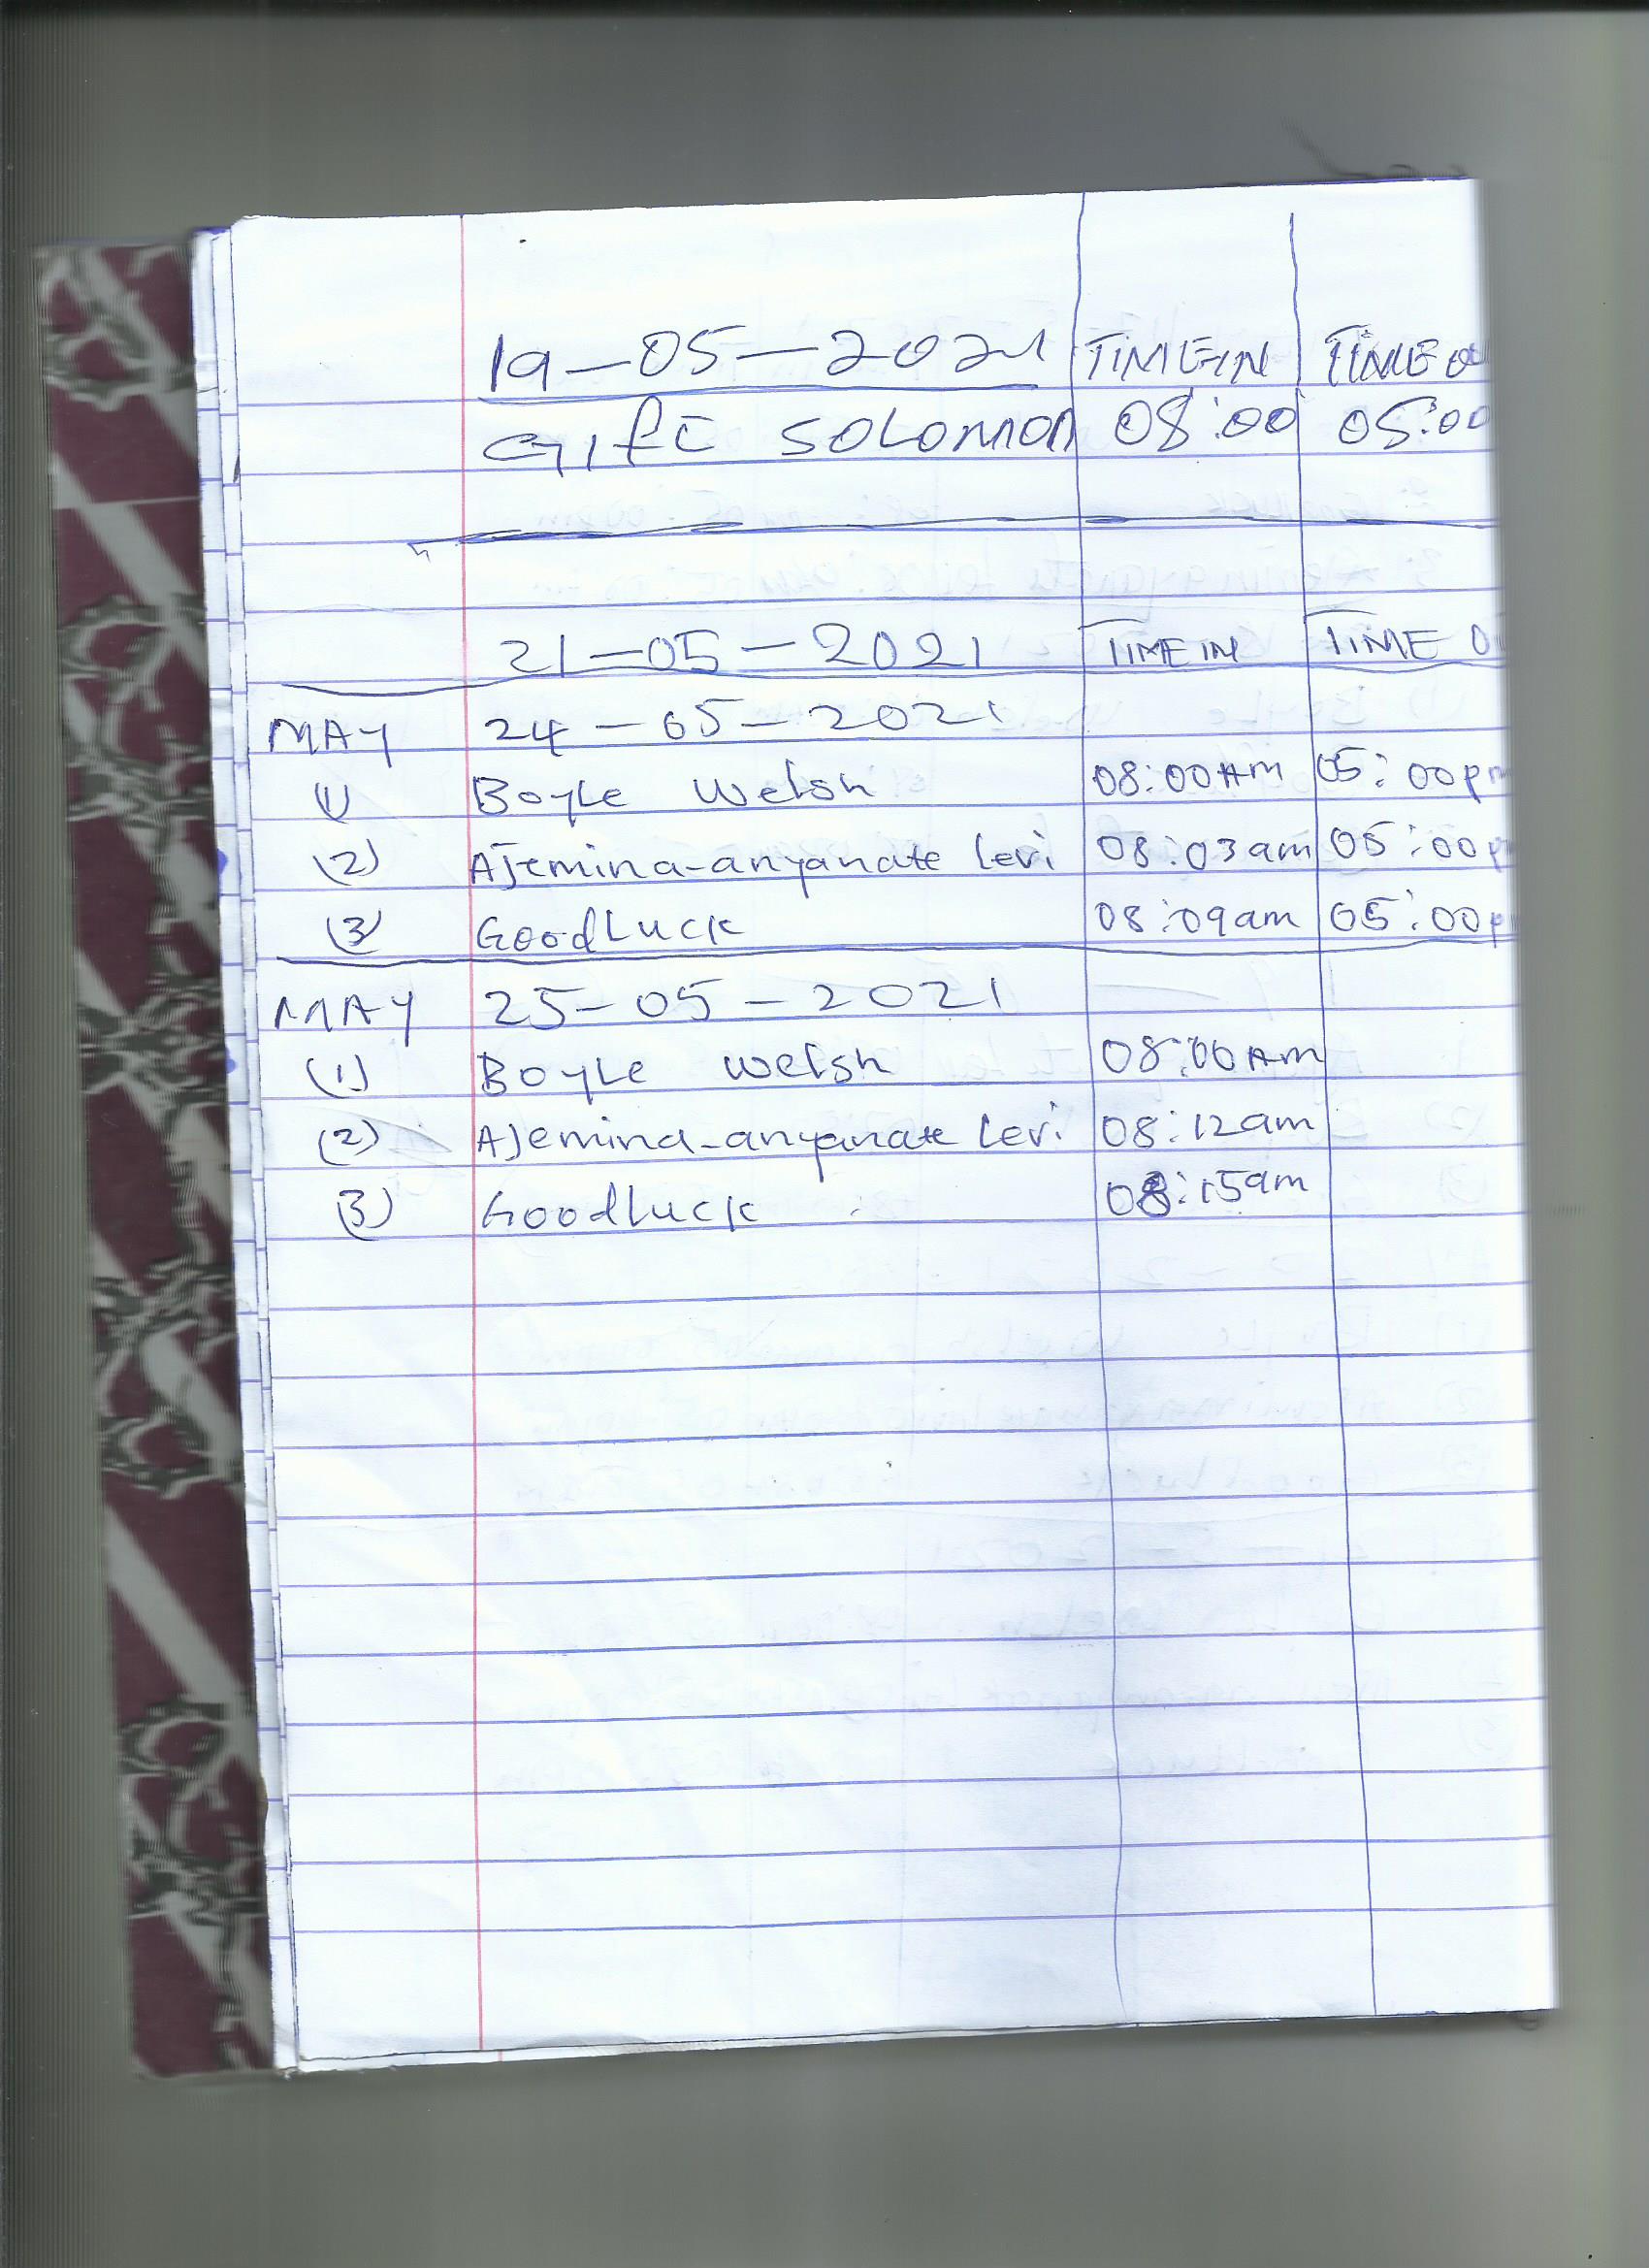 19-05-2021 TIME IN TIME OU
Gift Solomon 08:00 05:00
21-05-2021 TIME IN TIME O
MAY 24-05-2021
(1) Boyle Welsh 08:00 AM 05:00pm
(2) AJemina-anyanate Levi 08:03am 05:00p
(3) GoodLuck 08:09am 05:00p
MAY 25-05-2021
(1) Boyle Welsh 08:00 AM
(2) AJemina-anyanate Levi 08:12am
(3) GoodLuck 08:15am